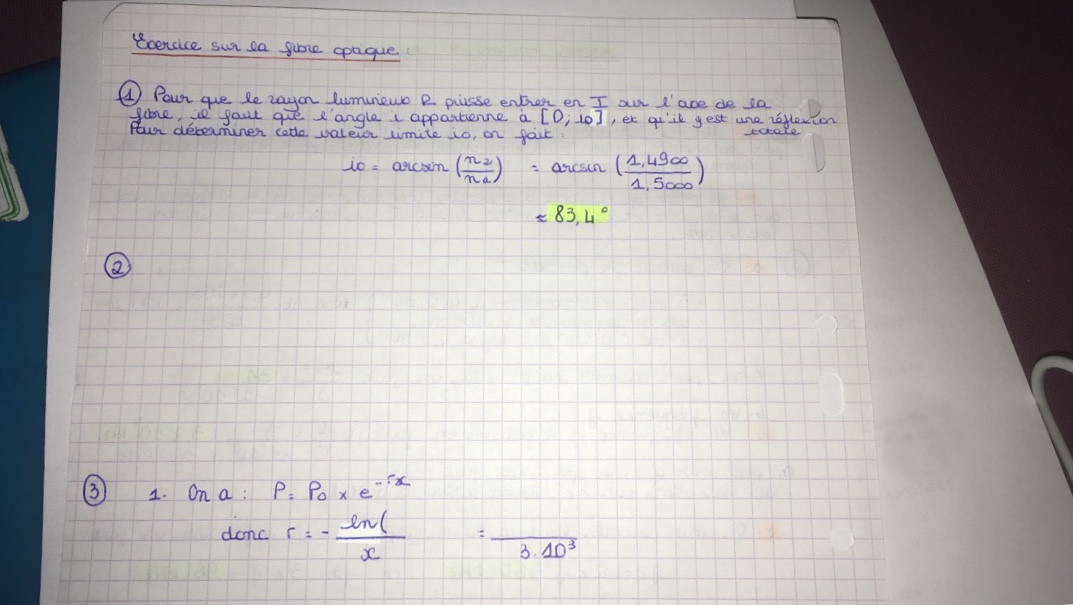 Exercice sur la fibre opaque :
① Pour que le rayon lumineux R puisse entrer en I sur l'axe de la
fibre, il faut que l'angle i appartienne à [0; i0], et qu'il y est une réflexion
totale
Pour déterminer cette valeur limite i0, on fait :
i0 = arcsin (n2/n1) = arcsin (1,4900/1,5000)
≈ 83,4°
②
③ 1. On a : P = P0 × e^-rx
donc r = - ln(/x = /3.10³